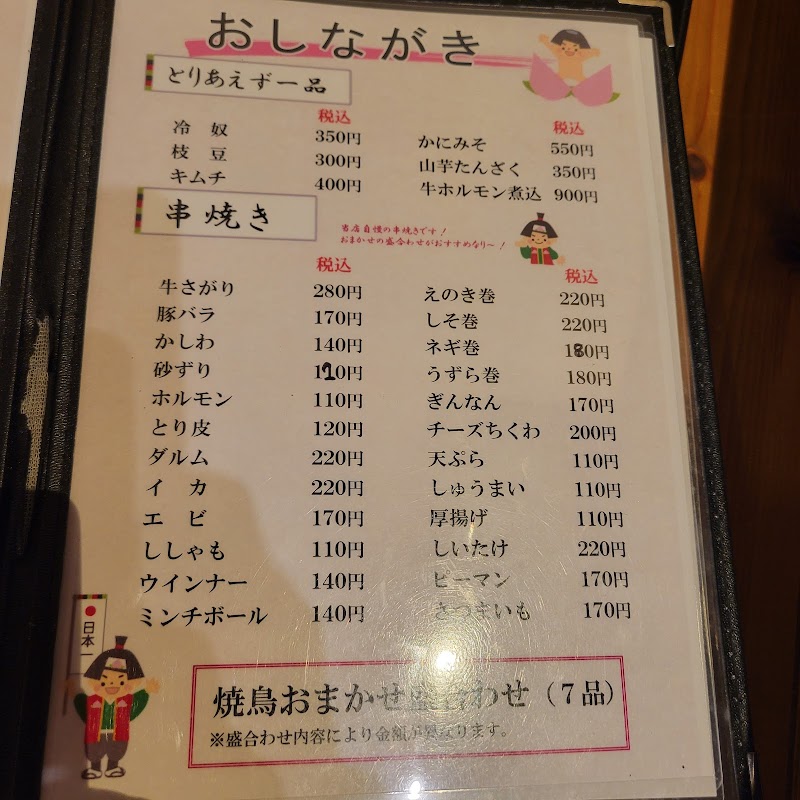 おしながき
とりあえず一品
税込
冷 奴 350円
枝 豆 300円
キムチ 400円
税込
かにみそ 550円
山芋たんざく 350円
牛ホルモン煮込 900円
串焼き
当店自慢の串焼きです!
おまかせの盛合わせがおすすめなり〜!
税込
牛さがり 280円
豚バラ 170円
かしわ 140円
砂ずり 110円
ホルモン 110円
とり皮 120円
ダルム 220円
イ カ 220円
エ ビ 170円
ししゃも 110円
ウインナー 140円
ミンチボール 140円
税込
えのき巻 220円
しそ巻 220円
ネギ巻 180円
うずら巻 180円
ぎんなん 170円
チーズちくわ 200円
天ぷら 110円
しゅうまい 110円
厚揚げ 110円
しいたけ 220円
ピーマン 170円
さつまいも 170円
日本一
焼鳥おまかせ盛合わせ(7品)
※盛合わせ内容により金額が異なります。